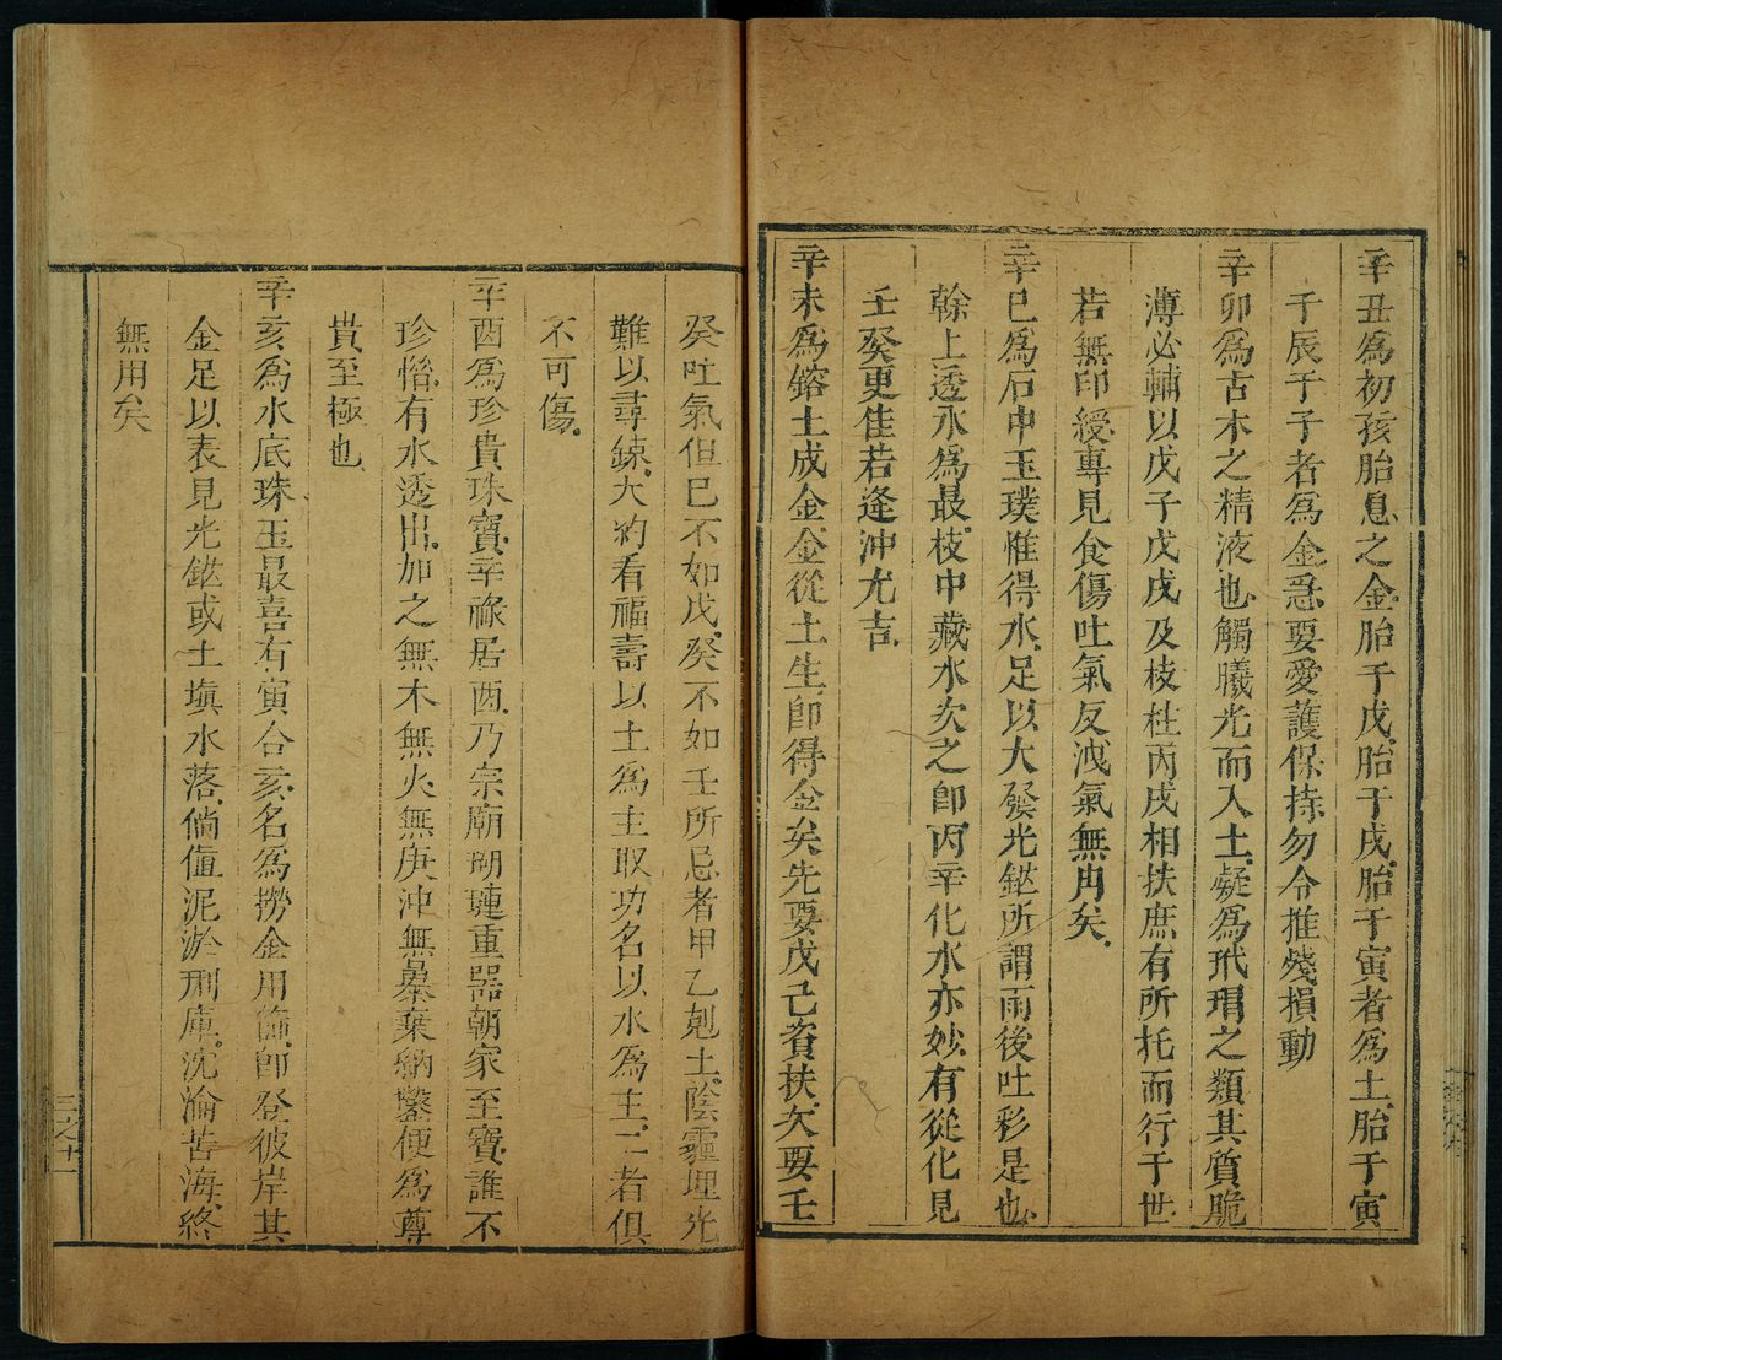 辛丑為初孩胎息之金胎于戊胎于戌胎于寅者為土胎于寅
于辰于子者為金忌要愛護保持勿令推殘損動
辛卯為古木之精液也觸曦光而入土凝為玳瑁之類其質脆
薄必輔以戊子戊戌及枝柱丙戌相扶庶有所托而行于世
若無印綬專見食傷吐氣反洩氣無用矣
辛巳為石中玉璞惟得水足以大發光鋩所謂雨後吐彩是也
幹上透水為最枝中藏水次之卽丙辛化水亦妙有從化見
壬癸更佳若逢沖尤吉
辛未為鎔土成金金從土生卽得金矣先要戊己資扶次要壬
癸吐氣但巳不如戊癸不如壬所忌者甲乙剋土陰霾埋光
難以尋鍊大約看福壽以土為主取功名以水為主二者俱
不可傷
辛酉為珍貴珠寶辛祿居酉乃宗廟瑚璉重器朝家至寶誰不
珍惜有水透出加之無木無火無庚沖無暴棄納鑒便為尊
貴至極也
辛亥為水底珠玉最喜有寅合亥名為撈金用餙卽登彼岸其
金足以表見光鋩或土塡水落倘值泥淤刑庫沈淪苦海終
無用矣
三之十一